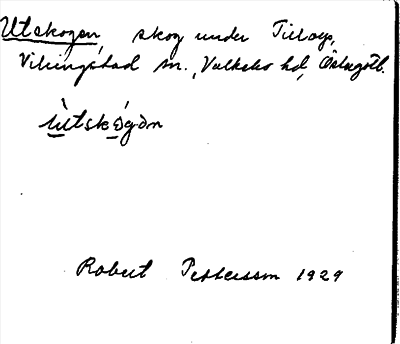 Utskogen, skog under Tillorp,
Vikingstad sn., Valkebo hd, Östergötl.
ù̱tskó̱gən
Robert Pettersson 1929